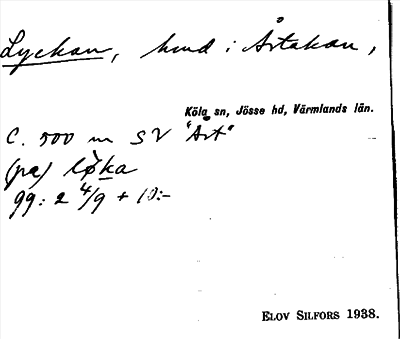 Lyckan, hmd i Årtakan,
Köla sn, Jösse hd, Värmlands län.
C. 500 m SV "Årt"
(på) løka
gg: 2 4/9 + 10:-
ELOV SILFORS 1938.